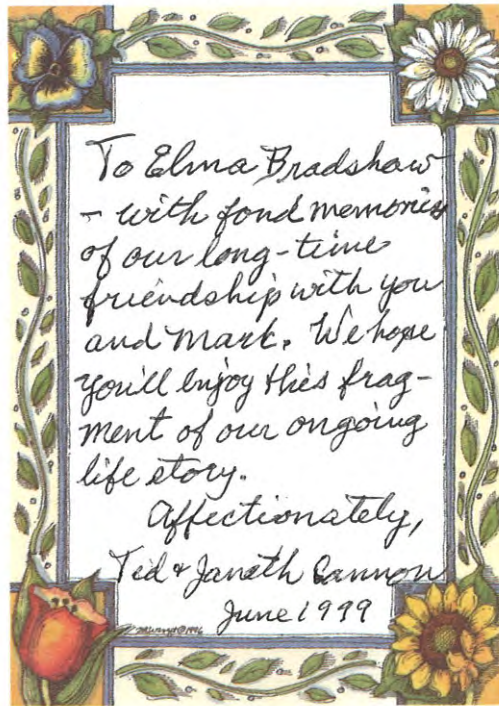 To Elma Bradshaw
- with fond memories
of our long-time
friendship with you
and Mark. We hope
you'll enjoy this frag-
ment of our ongoing
life story.
Affectionately,
Ted & Janath Cannon
June 1999